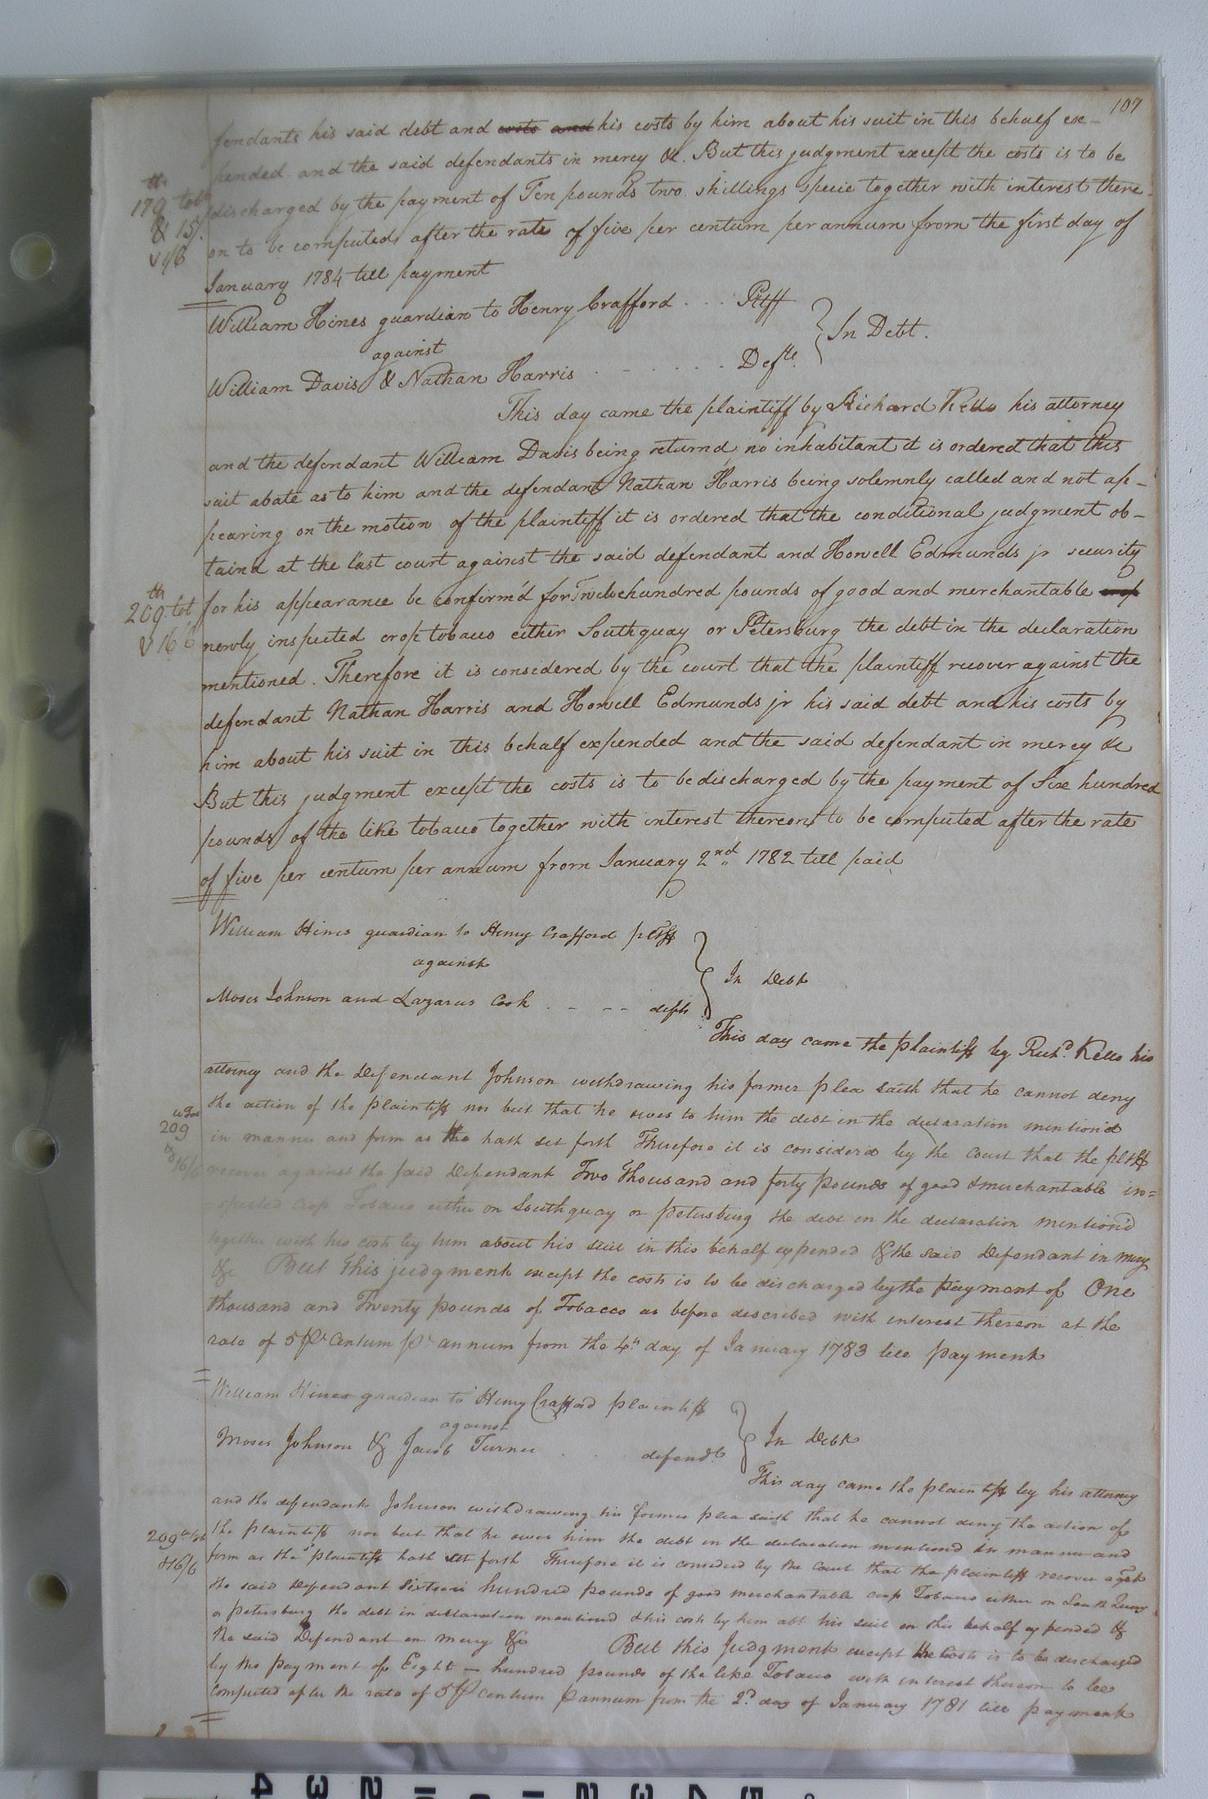 107
fendants his said debt and costs and his costs by him about his suit in this behalf ex-
pended and the said defendants in mercy &c. But this judgment except the costs is to be
discharged by the payment of Ten pounds two shillings specie together with interest there-
on to be computed after the rate of five per centum per annum from the first day of
January 1784 till payment
179 tob
& 15/.
William Hines guardian to Henry Crafford . . . Pltff
against
William Davis & Nathan Harris . . . . . . . Defts.
In Debt.
This day came the plaintiff by Richard Kello his attorney
and the defendant William Davis being returnd no inhabitant it is ordered that this
suit abate as to him and the defendant Nathan Harris being solemnly called and not ap-
pearing on the motion of the plaintiff it is ordered that the conditional judgment ob-
taind at the last court against the said defendant and Howell Edmunds jr security
for his appearance be confirm'd for Twelvehundred pounds of good and merchantable crop
newly inspected crop tobacco either Southquay or Petersburg the debt in the declaration
mentioned. Therefore it is considered by the court that the plaintiff recover against the
defendant Nathan Harris and Howell Edmunds jr his said debt and his costs by
him about his suit in this behalf expended and the said defendant in mercy &c
But this judgment except the costs is to be discharged by the payment of Six hundred
pounds of the like tobacco together with interest thereon to be computed after the rate
of five per centum per annum from January 2nd 1782 till paid
209 tob
16/6
William Hines guardian to Henry Crafford pltff
against
Moses Johnson and Lazarus Cook . - - - defts
In Debt
This day came the plaintiff by Richd Kello his
attorney and the Defendant Johnson withdrawing his former plea saith that he cannot deny
the action of the plaintiff nor but that he owes to him the debt in the declaration mention'd
in manner and form as the hath set forth Therefore it is considerd by the Court that the pltff
recover against the said Defendant Two Thousand and forty pounds of good & merchantable in=
spected crop Tobacco either on Southquay or petersburg the debt in the declaration mention'd
together with his costs by him about his suit in this behalf expended & the said Defendant in mercy
&c But this judgment except the costs is to be discharged by the payment of One
thousand and Twenty pounds of Tobacco as before described with interest thereon at the
rate of 5 Pr Centum Pr annum from the 4th day of January 1783 till payment
209
16/6
William Hines guardian to Henry Crafford plaintiff
against
Moses Johnson & Jacob Turner . . defendts
In Debt
This day came the plaintiff by his attorney
and the defendant Johnson withdrawing his former plea saith that he cannot deny the action of
the plaintiff nor but that he owes him the debt in the declaration mentiond in manner and
form as the plaintiff hath set forth Therefore it is considerd by the Court that the plaintiff recover agst
the said Defendant Sixteen hundred pounds of good merchantable crop Tobacco either on South Quay
or petersburg the debt in declaration mentioned & his costs by him abt his suit in this behalf expended &
the said Defendant in mercy &c But this Judgment except the Costs is to be discharged
by the payment of Eight — hundred pounds of the like Tobacco with interest thereon to be
Computed after the rate of 5 P Centum P annum from the 2d day of January 1781 till payment
209
16/6